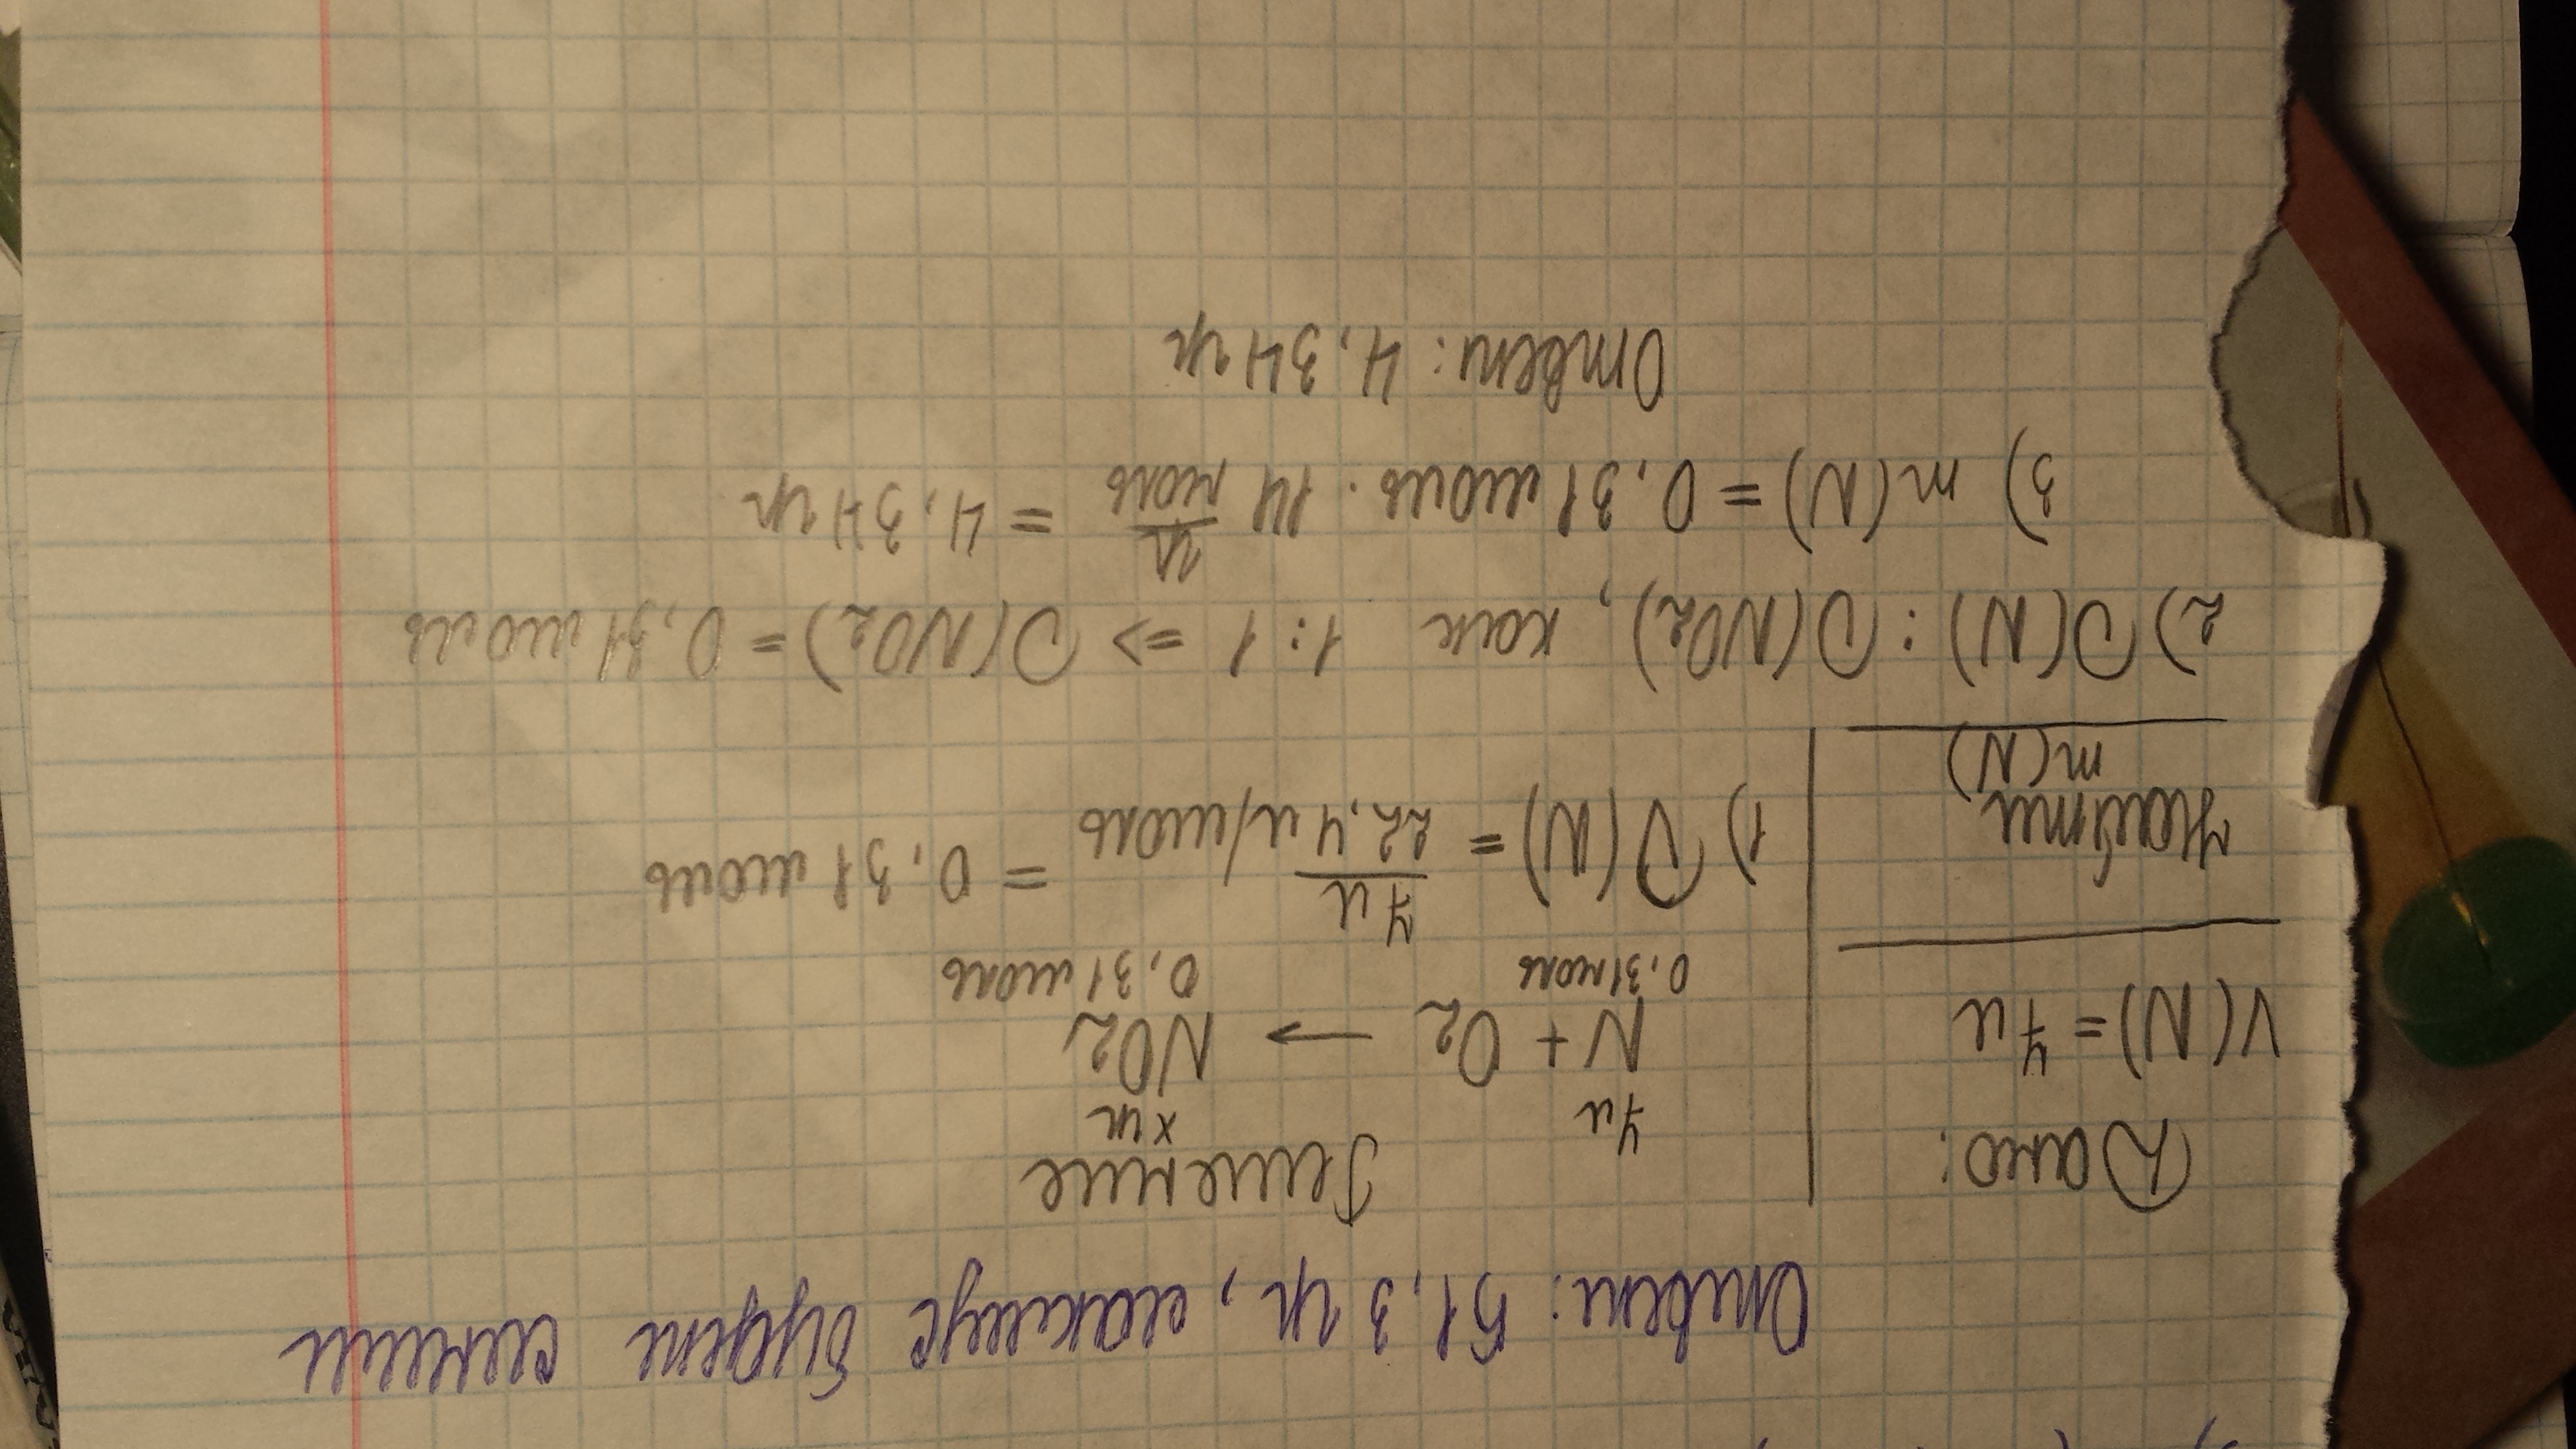 Ответ: 51,3 гр, лакмус будет синим
Дано:
V(N) = 7л
Найти
m(N)
Решение
7л xгр
N + O2 → NO2
0,31моль 0,31моль
1) ν(N) = 7л / 22,4 л/моль = 0,31 моль
2) ν(N) : ν(NO2), как 1:1 => ν(NO2) = 0,31 моль
3) m(N) = 0,31 моль · 14 гр/моль = 4,34 гр
Ответ: 4,34 гр